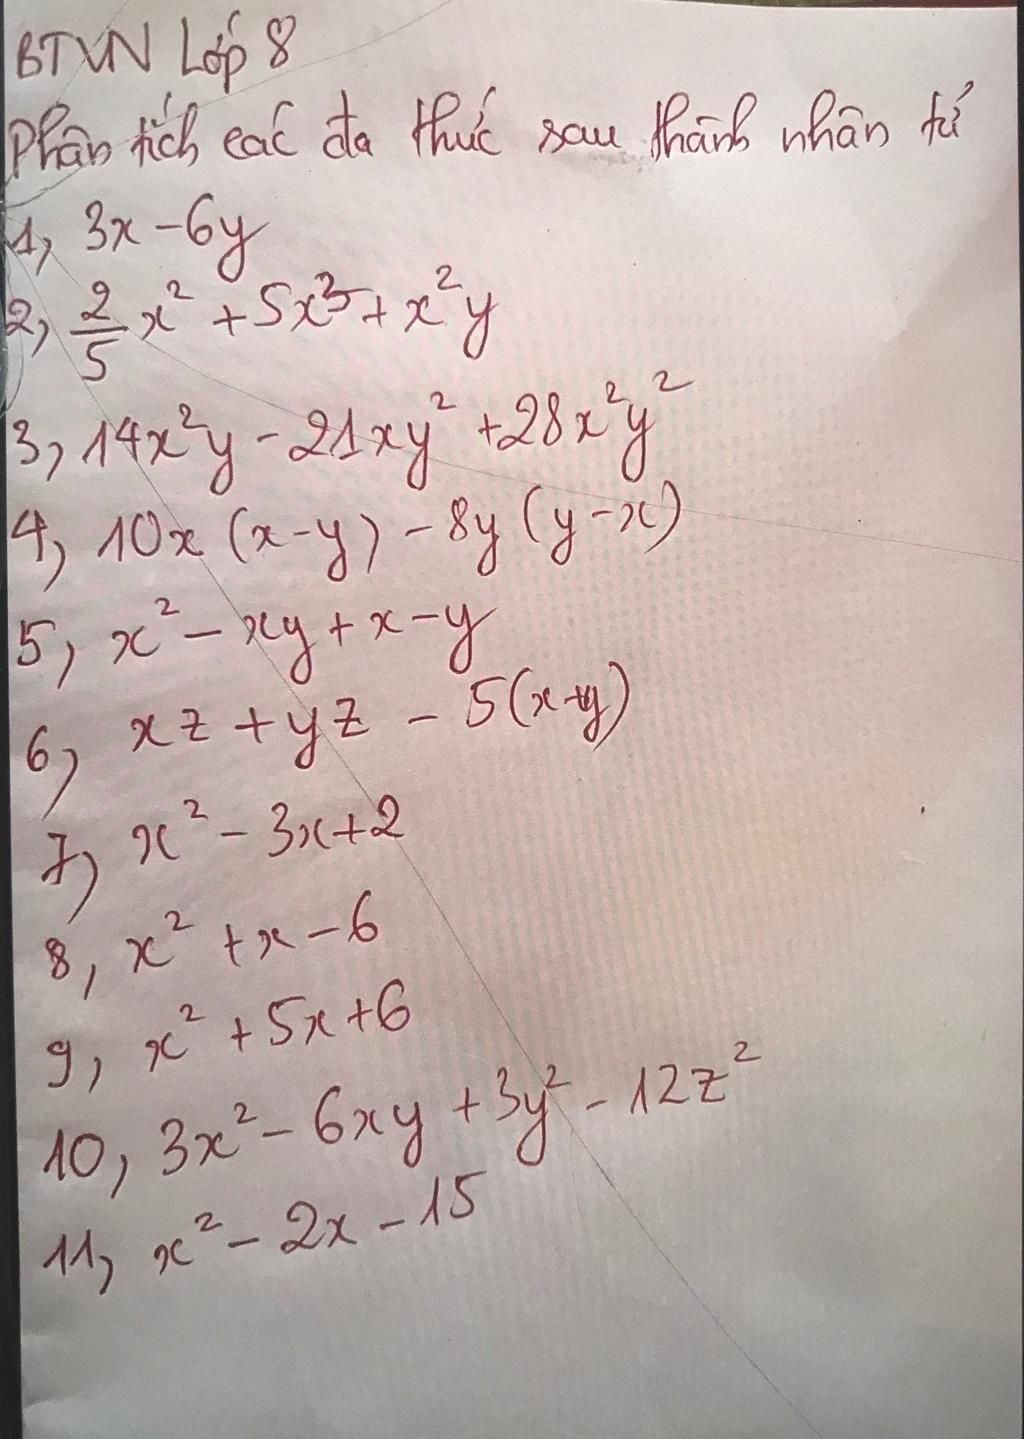 BTVN Lớp 8
Phân tích các đa thức sau thành nhân tử
1, 3x - 6y
2, 2/5 x² + 5x³ + x²y
3, 14x²y - 21xy² + 28x²y²
4, 10x (x-y) - 8y (y-x)
5, x² - xy + x - y
6, xz + yz - 5(x+y)
7, x² - 3x + 2
8, x² + x - 6
9, x² + 5x + 6
10, 3x² - 6xy + 3y² - 12z²
11, x² - 2x - 15